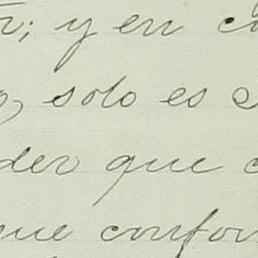 ; y en
solo es
der que
que confor